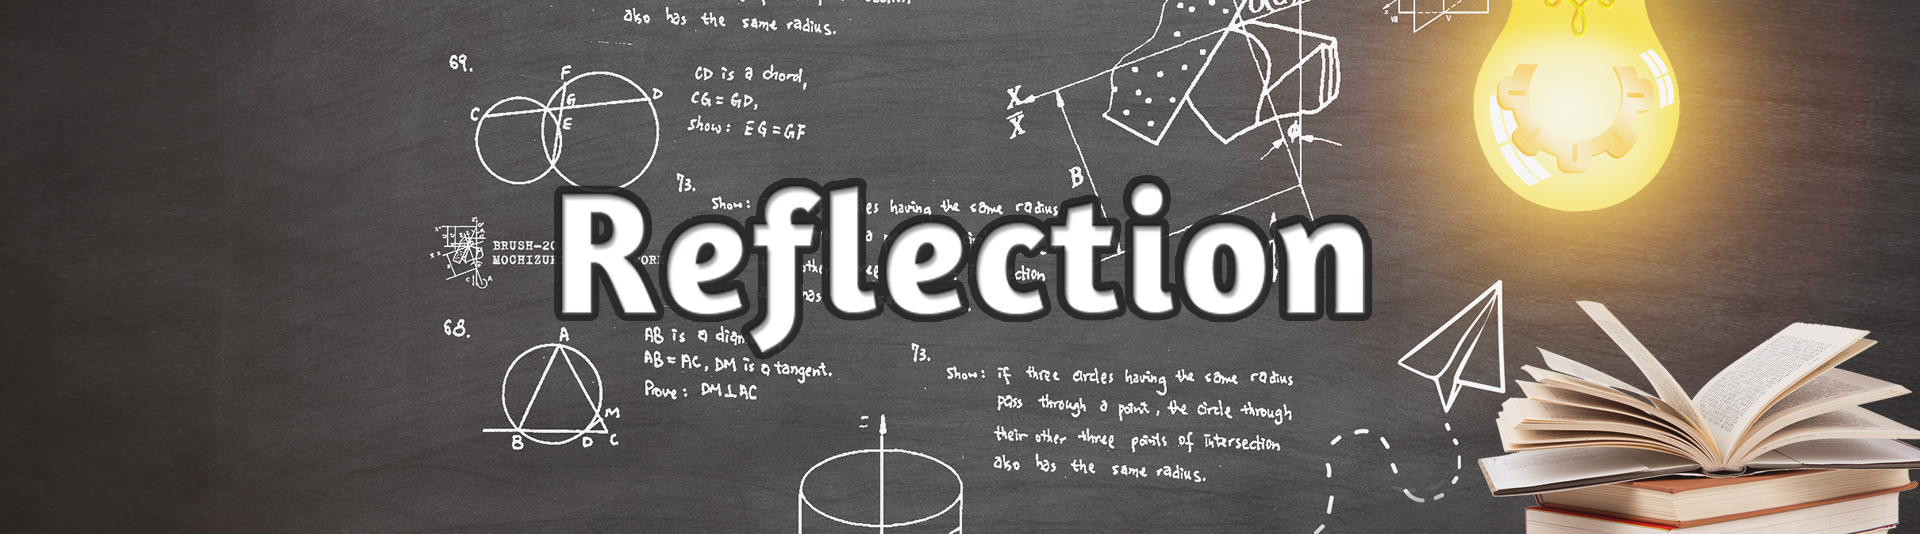 also has the same radius.
69.
F
C
G
D
E
CD is a chord,
CG = GD,
Show: EG = GF
X
X̄
B
ϕ
73.
Show:
es having the same radius
Reflection
BRUSH-20
MOCHIZU
ction
68.
A
B
D
M
C
AB is a diam
AB = AC, DM is a tangent.
Prove: DM⊥AC
73.
Show: if three circles having the same radius
pass through a point, the circle through
their other three points of intersection
also has the same radius.